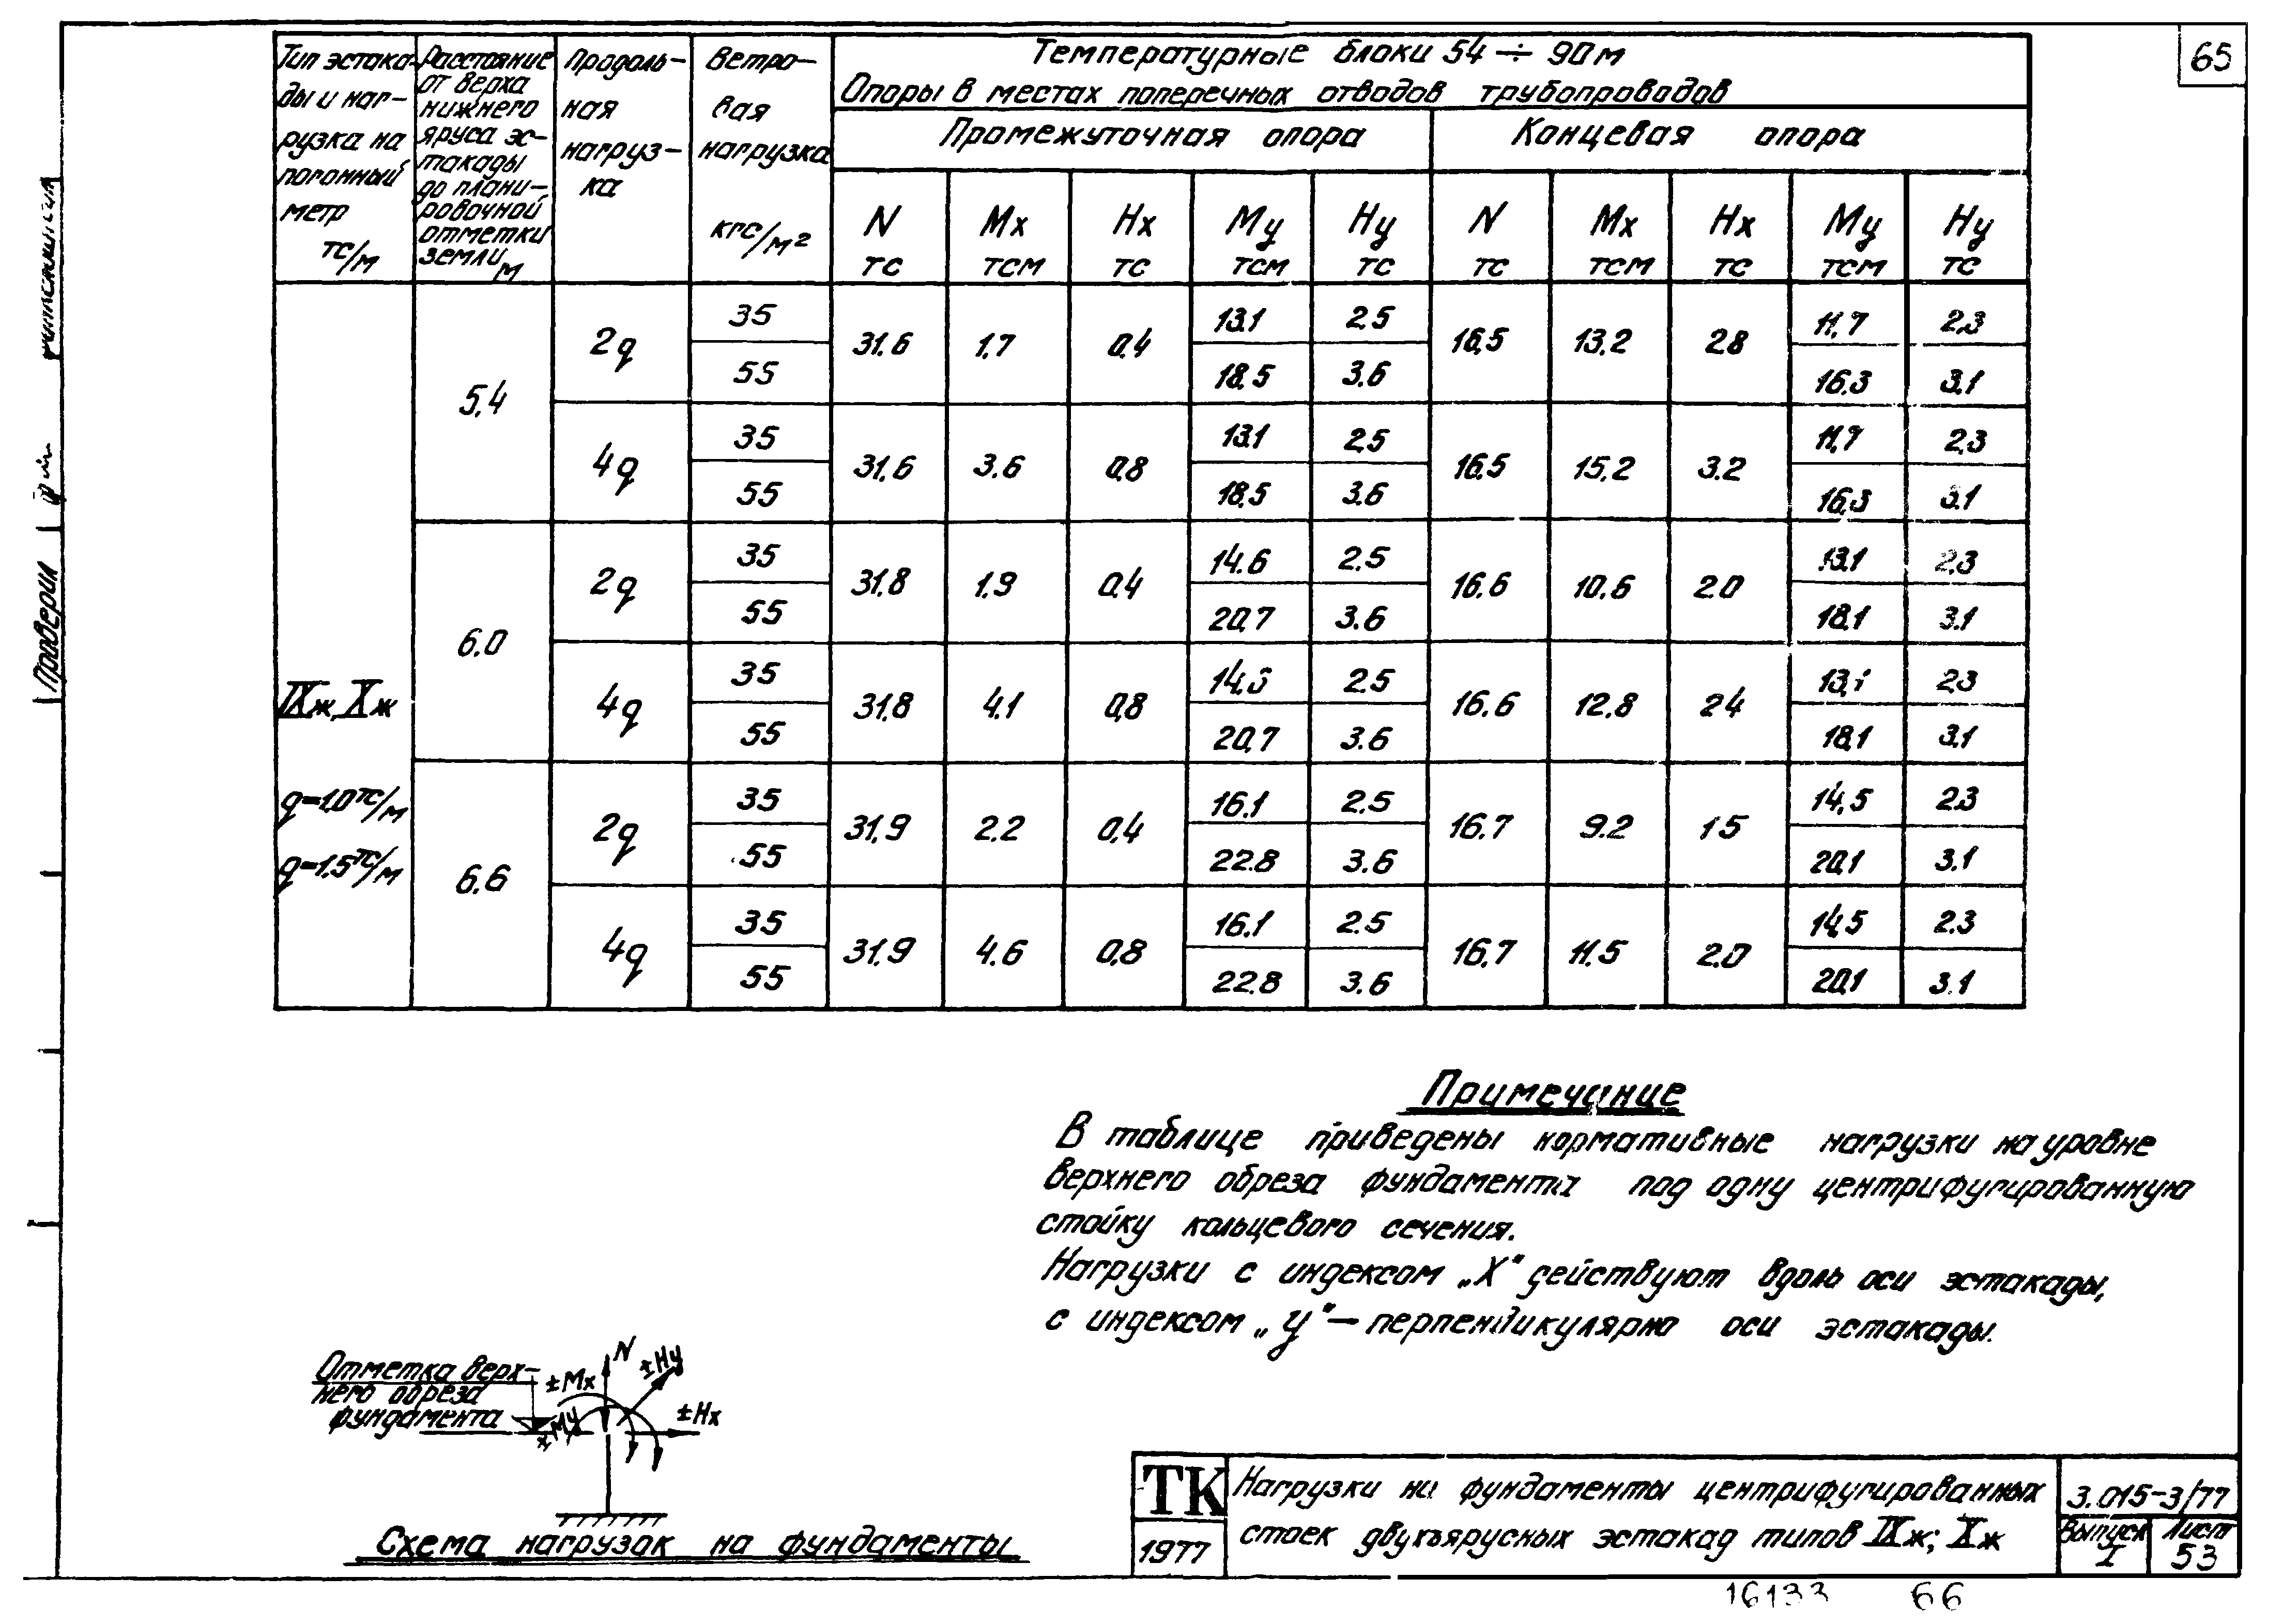 65
Тип эстака-
ды и наг-
рузка на
погонный
метр
тс/м
Расстояние
от верха
нижнего
яруса эс-
такады
до плани-
ровочной
отметки
земли, м
Продоль-
ная
нагруз-
ка
Ветро-
вая
нагрузка
кгс/м²
Температурные блоки 54 ÷ 90м
Опоры в местах поперечных отводов трубопроводов
Промежуточная опора Концевая опора
N Mx Hx My Hy N Mx Hx My Hy
тс тсм тс тсм тс тс тсм тс тсм тс
IXж, Xж
q=1.0 тс/м
q=1.5 тс/м
5,4
2q 35 31.6 1.7 0.4 13.1 2.5 16.5 13.2 2.8 11.7 2.3
55 18.5 3.6 16.3 3.1
4q 35 31.6 3.6 0.8 13.1 2.5 16.5 15.2 3.2 11.7 2.3
55 18.5 3.6 16.3 3.1
6.0
2q 35 31.8 1.9 0.4 14.6 2.5 16.6 10.6 2.0 13.1 2.3
55 20.7 3.6 18.1 3.1
4q 35 31.8 4.1 0.8 14.6 2.5 16.6 12.8 2.4 13.1 2.3
55 20.7 3.6 18.1 3.1
6.6
2q 35 31.9 2.2 0.4 16.1 2.5 16.7 9.2 1.5 14.5 2.3
55 22.8 3.6 20.1 3.1
4q 35 31.9 4.6 0.8 16.1 2.5 16.7 11.5 2.0 14.5 2.3
55 22.8 3.6 20.1 3.1
Примечание
В таблице приведены нормативные нагрузки на уровне
верхнего обреза фундамента под одну центрифугированную
стойку кольцевого сечения.
Нагрузки с индексом „X" действуют вдоль оси эстакады,
с индексом „У" — перпендикулярно оси эстакады.
Отметка верх-
него обреза
фундамента
±Mx
±My
N
±Hy
±Hx
Схема нагрузок на фундаменты
ТК
1977
Нагрузки на фундаменты центрифугированных
стоек двухъярусных эстакад типов IXж; Xж
3.015-3/77
Выпуск
I
Лист
53
16133 66
Проверил